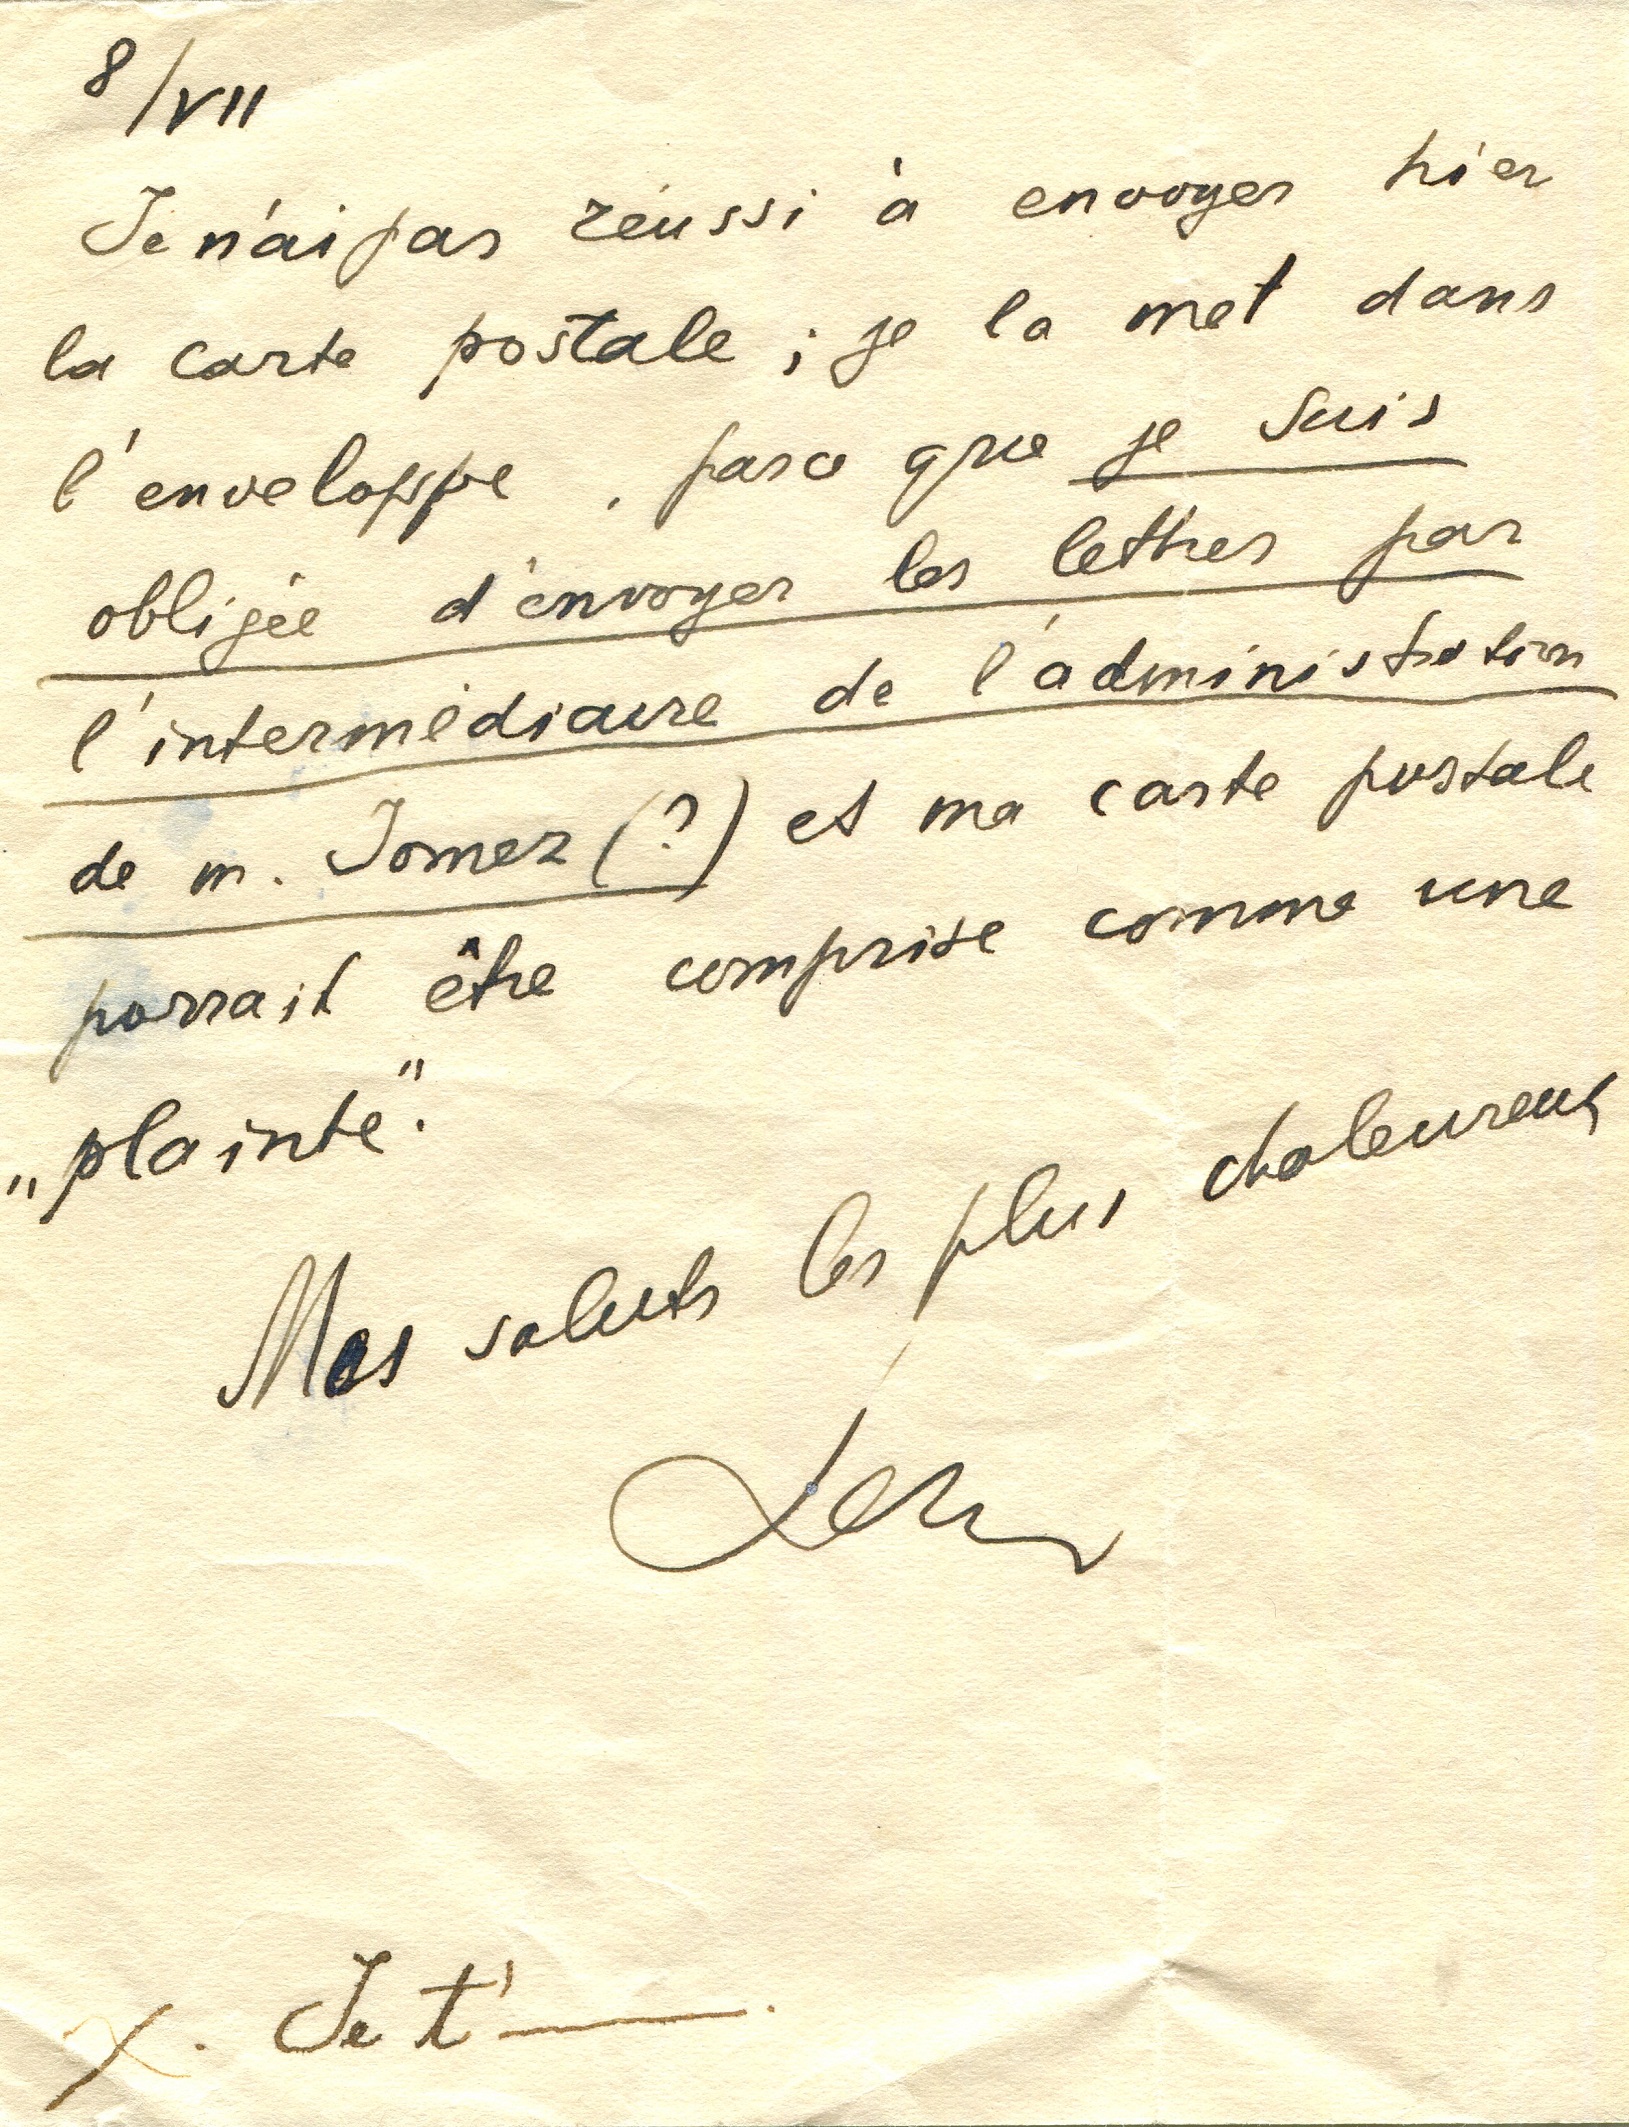 8/VII
Je n'ai pas réussi à envoyer hier
la carte postale ; je la met dans
l'enveloppe, parce que je suis
obligée d'envoyer les lettres par
l'intermédiaire de l'administration
de m. Jomez (?) et ma carte postale
porrait être comprise comme une
„plainte".
Mes saluts les plus chaleureux
x. Je t'—.